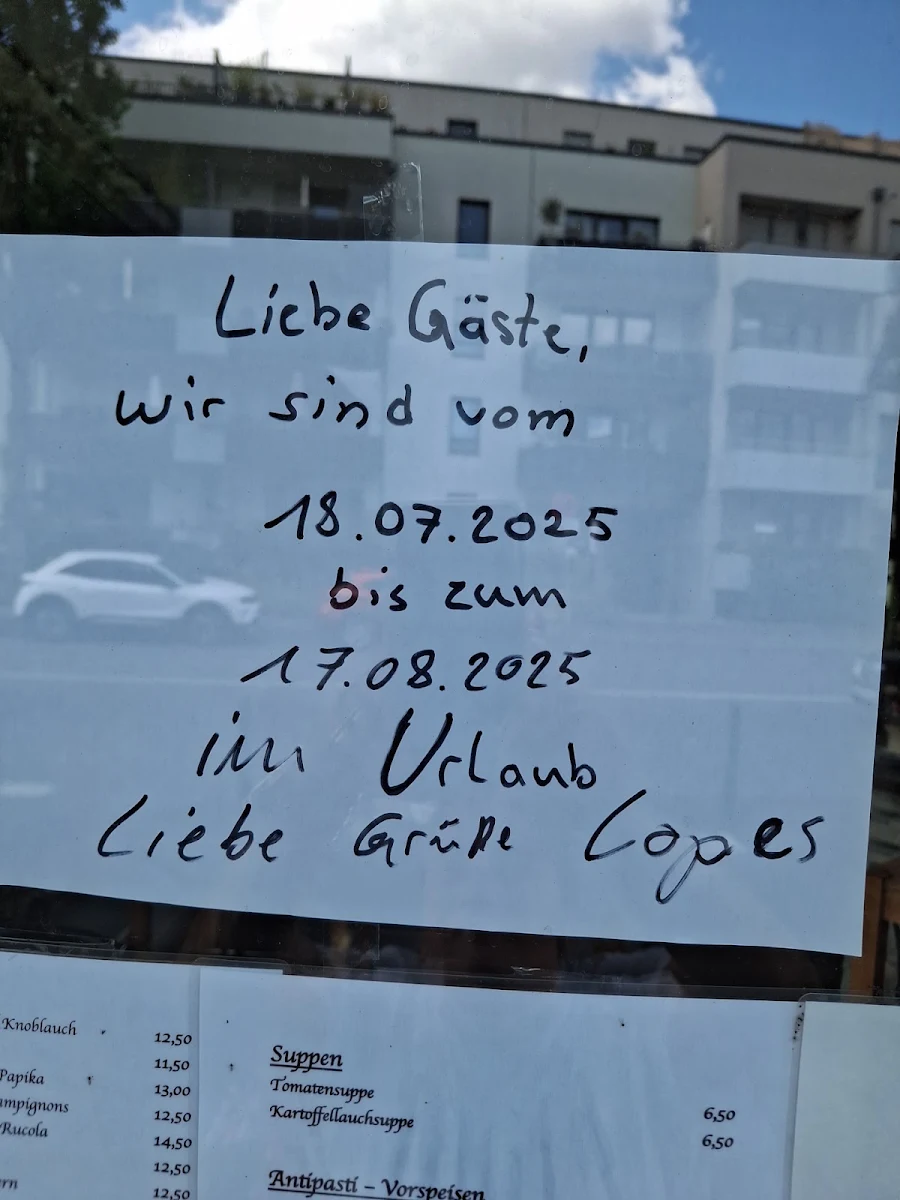 Liebe Gäste,
wir sind vom
18.07.2025
bis zum
17.08.2025
im Urlaub
Liebe Grüße Lopes
Knoblauch 12,50
11,50
Papika 13,00
ampignons 12,50
Rucola 14,50
12,50
ern 12,50
Suppen
Tomatensuppe 6,50
Kartoffellauchsuppe 6,50
Antipasti – Vorspeisen